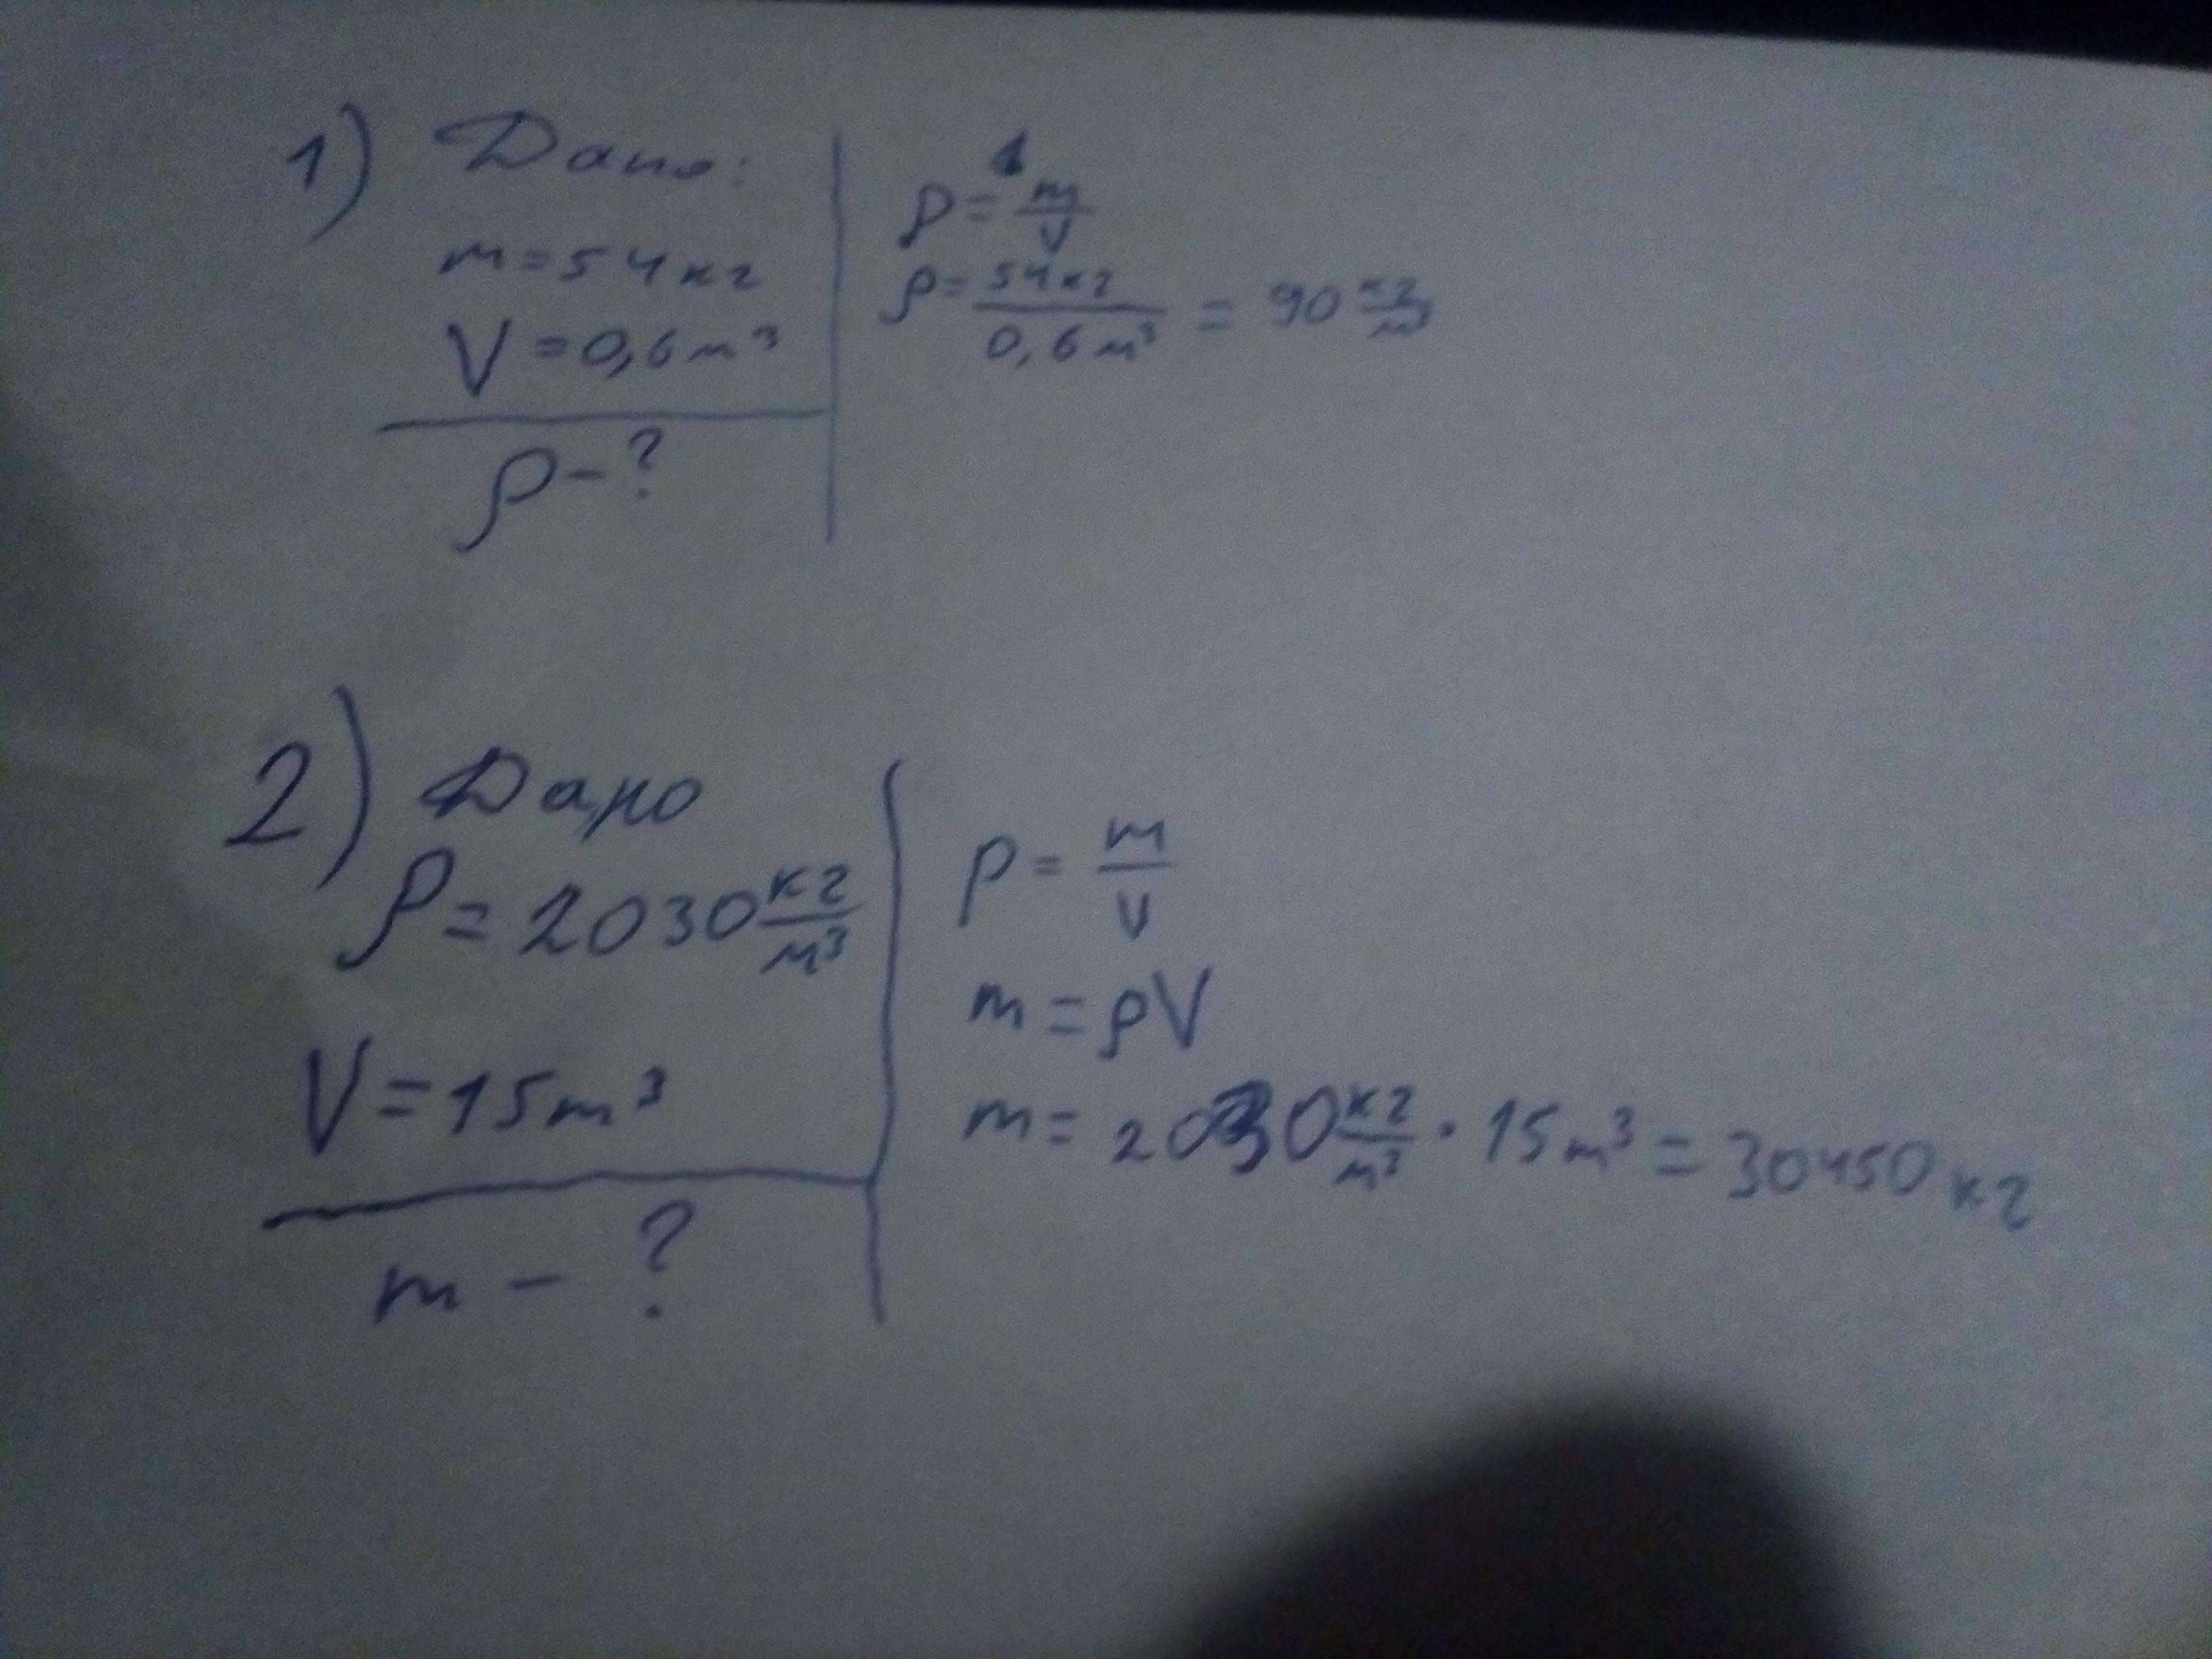 1) Дано:
m = 54 кг
V = 0,6 м³
ρ - ?
ρ = m/V
ρ = 54 кг / 0,6 м³ = 90 кг/м³
2) Дано
ρ = 2030 кг/м³
V = 15 м³
m - ?
ρ = m/V
m = ρV
m = 2030 кг/м³ · 15 м³ = 30450 кг